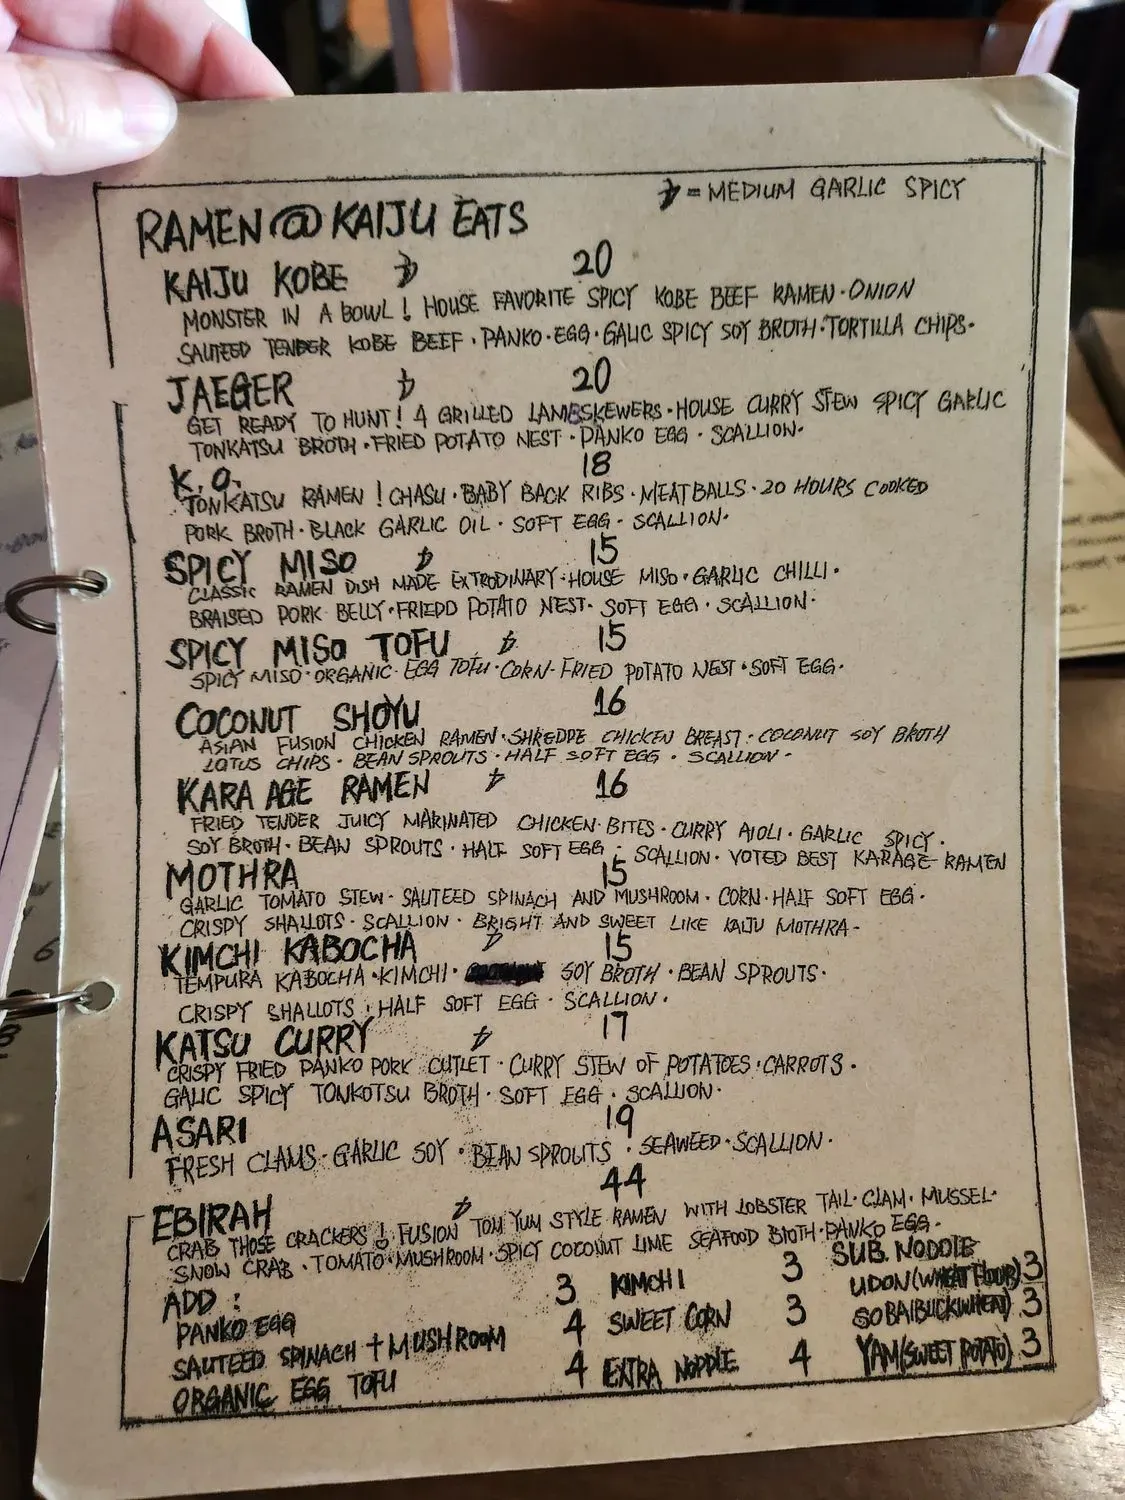 = MEDIUM GARLIC SPICY
RAMEN @ KAIJU EATS
KAIJU KOBE 20
MONSTER IN A BOWL! HOUSE FAVORITE SPICY KOBE BEEF RAMEN · ONION
SAUTEED TENDER KOBE BEEF · PANKO · EGG · GALIC SPICY SOY BROTH · TORTILLA CHIPS ·
JAEGER 20
GET READY TO HUNT! 4 GRILLED LAMBSKEWERS · HOUSE CURRY STEW SPICY GARLIC
TONKATSU BROTH · FRIED POTATO NEST · PANKO EGG · SCALLION ·
K.O. 18
TONKATSU RAMEN! CHASU · BABY BACK RIBS · MEATBALLS · 20 HOURS COOKED
PORK BROTH · BLACK GARLIC OIL · SOFT EGG · SCALLION ·
SPICY MISO 15
CLASSIC RAMEN DISH MADE EXTRODINARY · HOUSE MISO · GARLIC CHILLI ·
BRAISED PORK BELLY · FRIEDD POTATO NEST · SOFT EGG · SCALLION ·
SPICY MISO TOFU 15
SPICY MISO · ORGANIC EGG TOFU · CORN · FRIED POTATO NEST · SOFT EGG ·
COCONUT SHOYU 16
ASIAN FUSION CHICKEN RAMEN · SHREDDE CHICKEN BREAST · COCONUT SOY BROTH
LOTUS CHIPS · BEAN SPROUTS · HALF SOFT EGG · SCALLION ·
KARA AGE RAMEN 16
FRIED TENDER JUICY MARINATED CHICKEN · BITES · CURRY AIOLI · GARLIC SPICY ·
SOY BROTH · BEAN SPROUTS · HALF SOFT EGG · SCALLION · VOTED BEST KARAGE RAMEN
MOTHRA 15
GARLIC TOMATO STEW · SAUTEED SPINACH AND MUSHROOM · CORN · HALF SOFT EGG ·
CRISPY SHALLOTS · SCALLION · BRIGHT AND SWEET LIKE KAIJU MOTHRA ·
KIMCHI KABOCHA 15
TEMPURA KABOCHA · KIMCHI · SOY BROTH · BEAN SPROUTS ·
CRISPY SHALLOTS · HALF SOFT EGG · SCALLION ·
KATSU CURRY 17
CRISPY FRIED PANKO PORK CUTLET · CURRY STEW OF POTATOES · CARROTS ·
GALIC SPICY TONKOTSU BROTH · SOFT EGG · SCALLION ·
ASARI 19
FRESH CLAMS · GARLIC SOY · BEAN SPROUTS · SEAWEED · SCALLION ·
EBIRAH 44
CRAB THOSE CRACKERS! FUSION TOM YUM STYLE RAMEN WITH LOBSTER TAIL · CLAM · MUSSEL ·
SNOW CRAB · TOMATO · MUSHROOM · SPICY COCONUT LIME SEAFOOD BROTH · PANKO EGG ·
ADD :
PANKO EGG 3
SAUTEED SPINACH + MUSHROOM 4
ORGANIC EGG TOFU 4
KIMCHI 3
SWEET CORN 3
EXTRA NODDLE 4
SUB. NODDLE
UDON (WHEAT FLOUR) 3
SOBA (BUCKWHEAT) 3
YAM (SWEET POTATO) 3